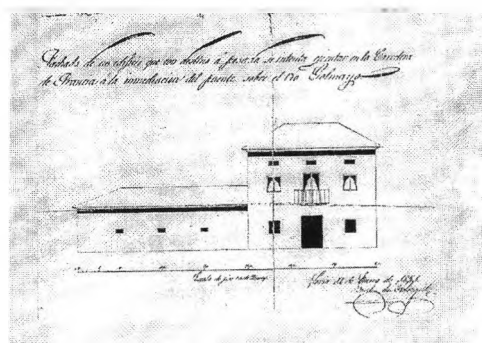 Fachada de un edificio que con destino á posada se intenta ejecutar en la Carretera
de Francia á la inmediacion del puente sobre el rio Golmayo
Escala de
Soria 12 de Enero de